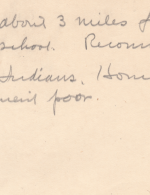 about 3 miles f
school. Recom
Indians. Hom
ment poor.